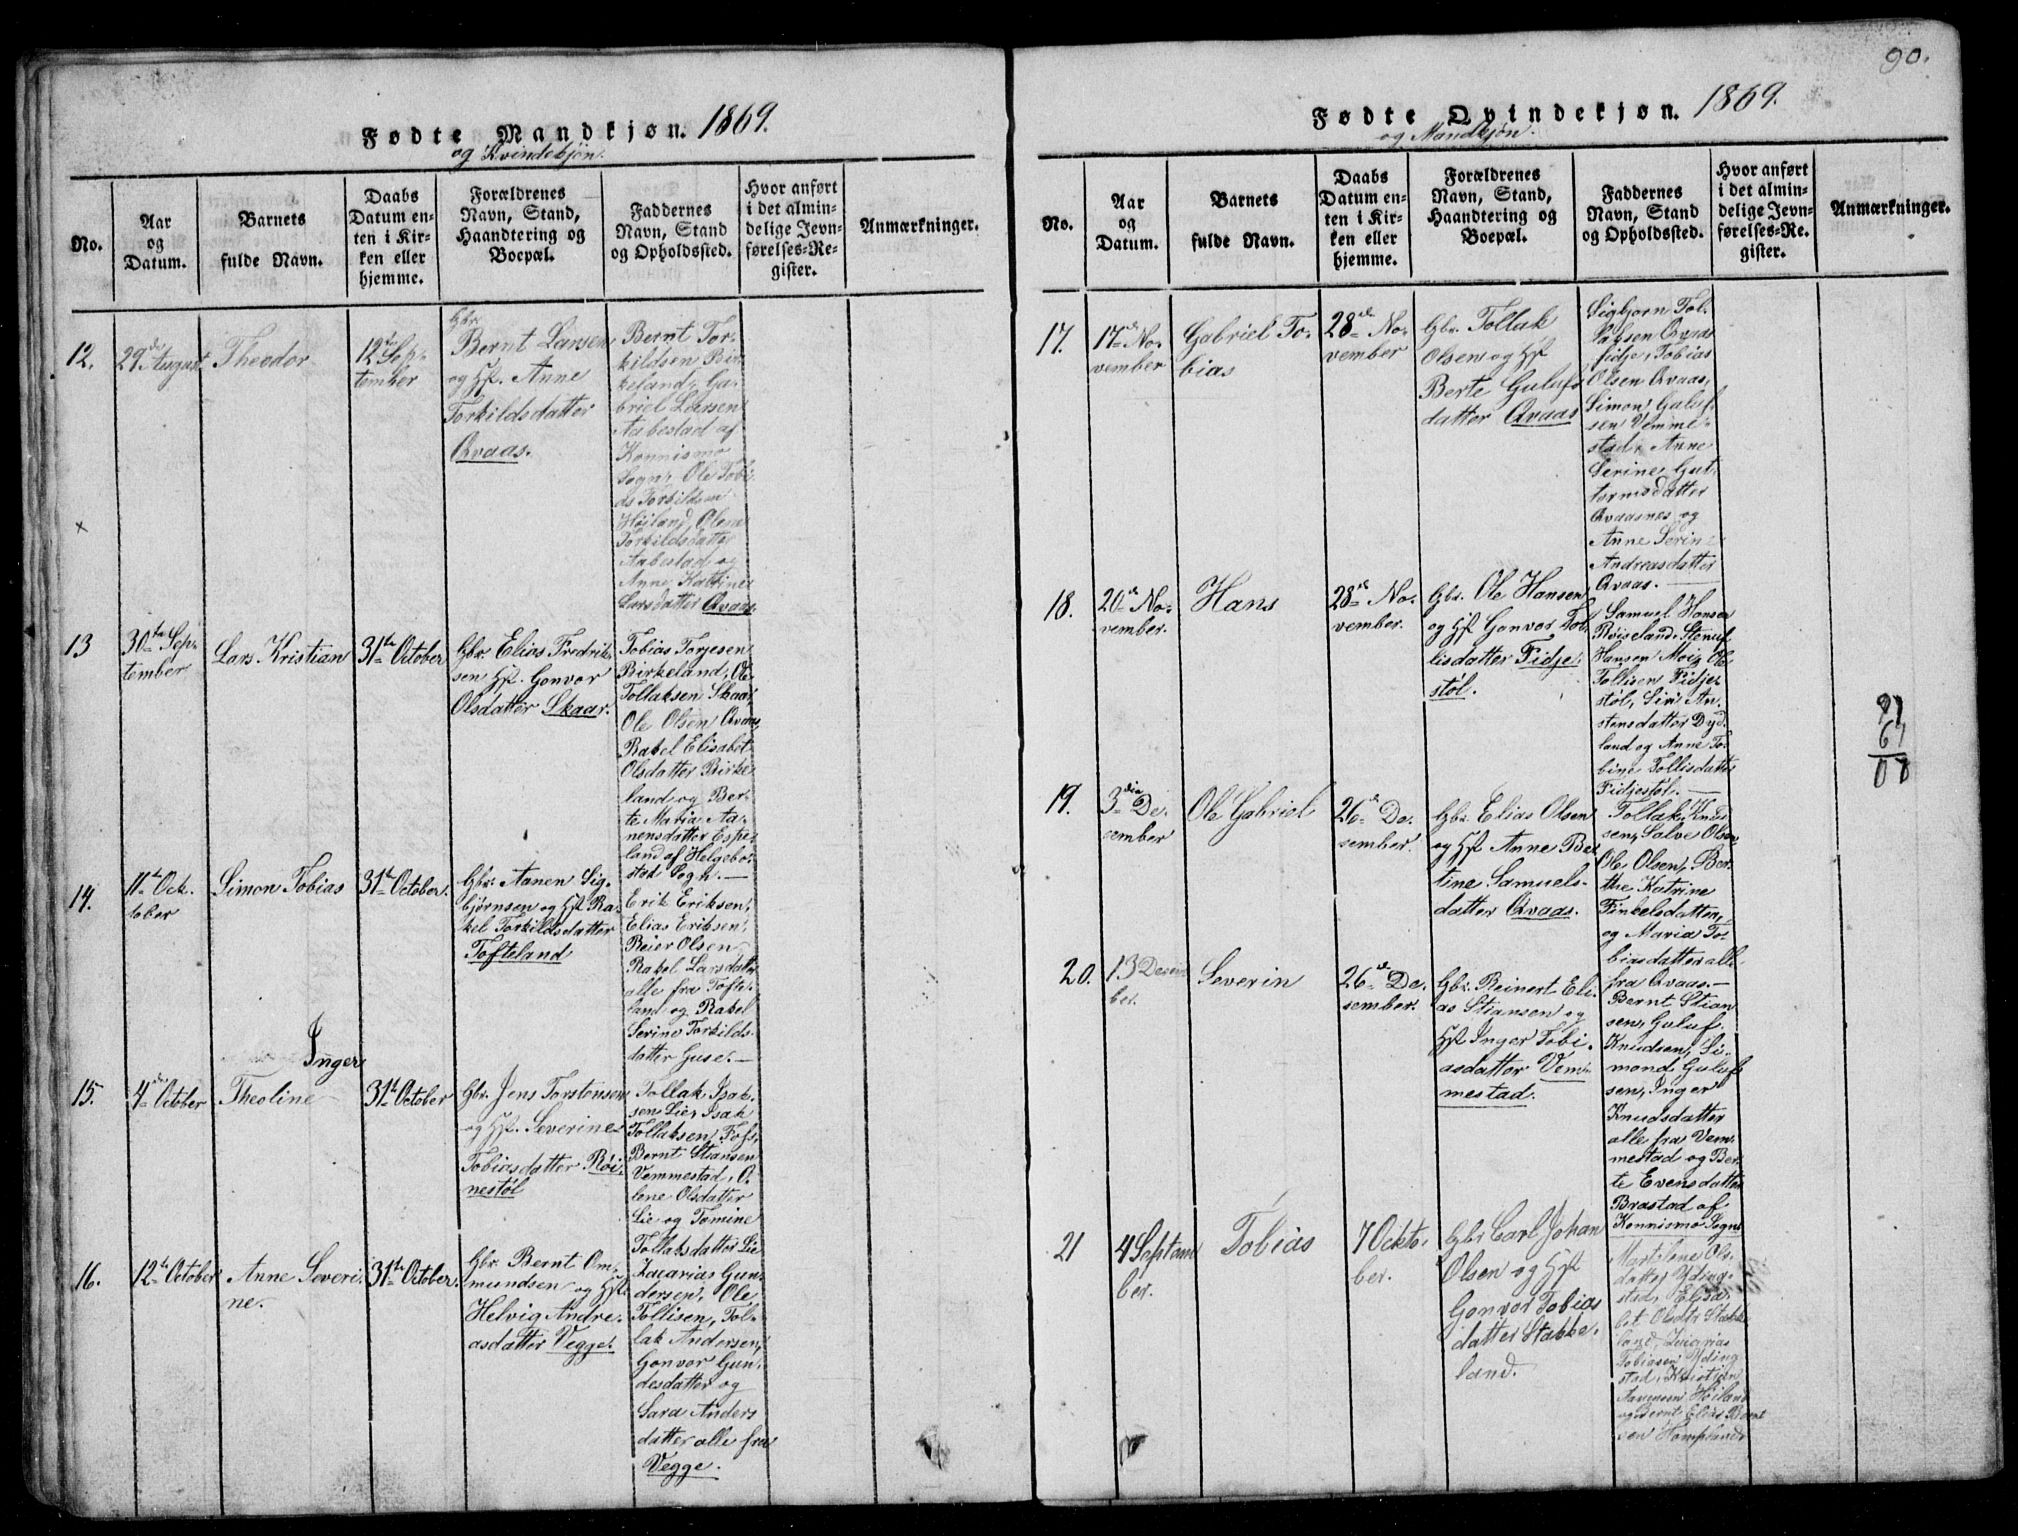 Fødte Mandkjøn. 1869.
og Kvindekjøn.
No.
Aar
og
Datum.
Barnets
fulde Navn.
Daabs
Datum en-
ten i Kir-
ken eller
hjemme.
Forældrenes
Navn, Stand,
Haandtering og
Boepæl.
Faddernes
Navn, Stand
og Opholdssted.
Hvor anført
i det almin-
delige Jevn-
førelses-Re-
gister.
Anmærkninger.
12.
29de August
Theodor
12te Sep-
tember
Gbr.
Bernt Larsen
og Hst. Anne
Torkildsdatter
Qvaas.
Bernt Tor-
kildsen Bir-
keland, Ga-
briel Larsen
Aabestad af
Konnismo
Sogn, Ole Tobi-
as Torkildsen
Høiland, Olene
Torkildsdatter
Aabestad og
Anne Kathrine
Larsdatter Qvaas.
13
30te Sep-
tember
Lars Kristian
31te October
Gbr. Elias Fredrik-
sen Hst. Gonvor
Olsdatter Skaar.
Tobias Torjesen
Birkeland, Ole
Tollaksen Skaar,
Ole Olsen Qvaas,
Rakel Elisabet
Olsdatter Birke-
land og Ber-
te Maria Aa-
nensdatter Espe-
land af Helgebo-
stad Sogn.
14.
11te Ock-
tober
Simon Tobias
31te October.
Gbr. Aanen Sig-
bjørnsen og Hst. Ra-
kel Torkildsdatter
Tofteland
Erik Eriksen,
Elias Eriksen,
Reier Olsen
Rakel Larsdatter
alle fra Tofte-
land og Rakel
Serine Torkilds-
datter Guse.
15.
4de October
Inger
Theoline
31te October
Gbr. Jens Torstensen
og Hst. Severine
Tobiasdatter Røi-
nestøl
Tollak Isak-
sen Lie, Isak
Tollaksen Foss,
Bernt Stiansen
Vemmestad, O-
lene Olsdatter
Lie og Tomine
Tollaksdatter Lie
16.
12te October
Anne Severi-
ne.
31te October.
Gbr. Bernt Om-
mundsen og Hst.
Helvig Andre-
asdatter Vegge.
Zacarias Gun-
dersen, Ole
Tollisen, Tol-
lak Andersen,
Gonvor Gun-
desdatter og
Sara Anders
datter alle fra
Vegge.
90.
Fødte Qvindekjøn. 1869.
og Mandkjøn.
No.
Aar
og
Datum.
Barnets
fulde Navn.
Daabs
Datum en-
ten i Kir-
ken eller
hjemme.
Forældrenes
Navn, Stand,
Haandtering og
Boepæl.
Faddernes
Navn, Stand
og Opholdssted.
Hvor anført
i det almin-
delige Jevn-
førelses-Re-
gister.
Anmærkninger.
17.
17de No-
vember
Gabriel To-
bias
28de No-
vember
Gbr. Tollak
Olsen og Hst
Berte Gulufs
datter Qvaas
Sigbjørn Tol-
laksen Qvaas
fidje, Tobias
Olsen Qvaas,
Simon Guluf-
sen Vemme-
stad, Anne
Serine Gut-
tormsdatter
Qvaasnes og
Anne Serine
Andreasdatter
Qvaas.
18.
20de No-
vember.
Hans
28de No-
vember.
Gbr. Ole Hansen
og Hst Gonvor Tol-
lisdatter Fidje-
støl.
Samuel Hansen
Røiseland, Stenuf
Hansen Moi, Ole
Tollisen Fidje-
støl, Siri An-
stensdatter Dyd-
land og Anne To-
bine Tollisdatter
Fidjestøl.
19.
3die De-
sember
Ole Gabriel
26de De-
sember.
Gbr. Elias Olsen
og Hst Anne Ber-
tine Samuels-
datter Qvaas.
Tollak Knud
sen, Salve Olsen
Ole Olsen, Ber-
the Katrine
Finkelsdatter,
og Maria To-
biasdatter alle
fra Qvaas.
20.
13 Desem
ber.
Severin
26de De-
sember.
Gbr. Reinert Eli-
as Stiansen og
Hst Inger Tobi-
asdatter Vem-
mestad.
Bernt Stian
sen, Guluf
Knudsen, Si-
mond Guluf-
sen, Inger
Knudsdatter
alle fra Vem-
mestad og Ber-
te Evensdatter
Brastad af
Konnismo Sogn
21
4 Septem
ber.
Tobias
7 Ockto-
ber.
Gbr Carl Johan
Olsen og Hst
Gonvor Tobias
datter Stakke-
land.
Mart Lene Ols-
datter Yding-
stad, Elisa-
bet Olsdtr Stakke
land, Zacarias
Tobiasen Yding
stad, Kristian
Aanensen Høiland
og Bernt Elias Bernt
sen
61